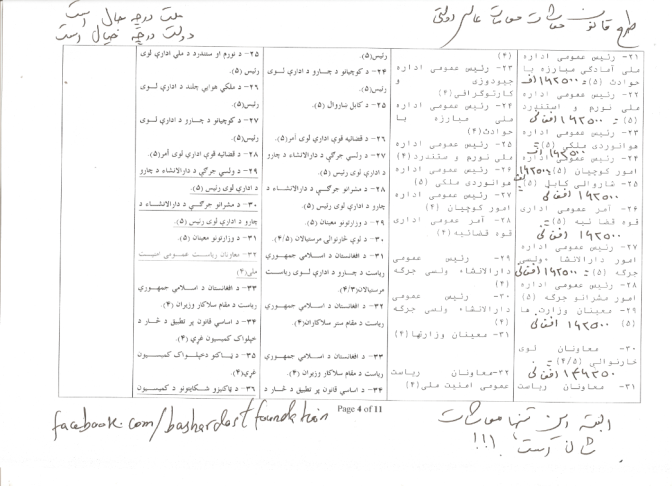 طرح قانون معاشات مقامات عالی دولتی
ملت درچه حال است
دولت درچه خیال است
۲۱- رئیس عمومی اداره
ملی آمادگی مبارزه با
حوادث (۵) = ۱۹۲۵۰۰ افغانی
۲۲- رئیس عمومی اداره
ملی نورم و ستندرد
(۵) = ۱۹۲۵۰۰ افغانی
۲۳- رئیس عمومی اداره
هوانوردی ملکی (۵) =
۱۹۲۵۰۰
۲۴- رئیس عمومی اداره
امور کوچیان (۵) = ۱۹۲۵۰۰
۲۵- شاروالی کابل (۵) =
۱۹۲۵۰۰ افغانی
۲۶- آمر عمومی اداری
قوه قضائیه (۵) =
۱۹۲۵۰۰ افغانی
۲۷- رئیس عمومی اداره
امور دارالانشاء ولسی
جرگه (۵) = ۱۹۲۵۰۰ افغانی
۲۸- رئیس عمومی اداره
امور مشرانو جرگه (۵)
۲۹- معینان وزارت ها
(۵) ۱۹۲۵۰۰ افغانی
۳۰- معاونان لوی
خارنوالی (۴/۵) =
افغانی
۳۱- معاونان ریاست
(۴)
۲۳- رئیس عمومی اداره
جیودوزی و
کارتوگرافی (۴)
۲۴- رئیس عمومی اداره
ملی مبارزه با
حوادث (۴)
۲۵- رئیس عمومی اداره
ملی نورم و ستندرد (۴)
۲۶- رئیس عمومی اداره
هوانوردی ملکی (۵)
۲۷- رئیس عمومی اداره
امور کوچیان (۴)
۲۸- آمر عمومی اداری
قوه قضائیه (۴)
۲۹- رئیس عمومی
دارالانشاء ولسی جرگه
(۴)
۳۰- رئیس عمومی
دارالانشاء ولسی جرگه
(۴)
۳۱- معینان وزارتها (۴)
۳۲- معاونان ریاست
عمومی امنیت ملی (۴)
رئیس (۵).
۲۴- د کوچیانو د چارو د اداري لوی
رئیس (۵).
۲۵- د کابل ښاروال (۵).
۲۶- د قضائیه قوې اداري لوی آمر (۵).
۲۷- د ولسي جرګې د دارالانشاء د چارو
د اداري لوی رئیس (۵).
۲۸- د مشرانو جرګې د دارالانشاء د
چارو د اداري لوی رئیس (۵).
۲۹- د وزارتونو معینان (۵).
۳۰- د لوی څارنوالۍ مرستیالان (۴/۵).
۳۱- د افغانستان د اسلامي جمهوري
ریاست د چارو د اداري لوی ریاست
مرستیالان (۴/۳).
۳۲- د افغانستان د اسلامي جمهوري
ریاست د مقام ستر سلاکاران (۴).
۳۳- د افغانستان د اسلامي جمهوري
ریاست د مقام سلاکار وزیران (۴).
۳۴- د اساسي قانون پر تطبیق د څار د
۲۵- د نورم او ستندرد د ملي اداري لوی
رئیس (۵).
۲۶- د ملکي هوایي چلند د اداري لوی
رئیس (۵).
۲۷- د کوچیانو د چارو د اداري لوی
رئیس (۵).
۲۸- د قضائیه قوې اداري لوی آمر (۵).
۲۹- د ولسي جرګې د دارالانشاء د چارو
د اداري لوی رئیس (۵).
۳۰- د مشرانو جرګې د دارالانشاء د
چارو د اداري لوی رئیس (۵).
۳۱- د وزارتونو معینان (۵).
۳۲- معاونان ریاست عمومی امنیت
ملی (۴).
۳۳- د افغانستان د اسلامي جمهوري
ریاست د مقام سلاکار وزیران (۴).
۳۴- د اساسي قانون پر تطبیق د څار د
خپلواک کمیسیون غړي (۴).
۳۵- د ټاکنو د خپلواک کمیسیون
غړي (۴).
۳۶- د ټاکنیزو شکایتونو د کمیسیون
Page 4 of 11
facebook.com/bashardost foundation
البته این تنها معاشات
شان است !!!